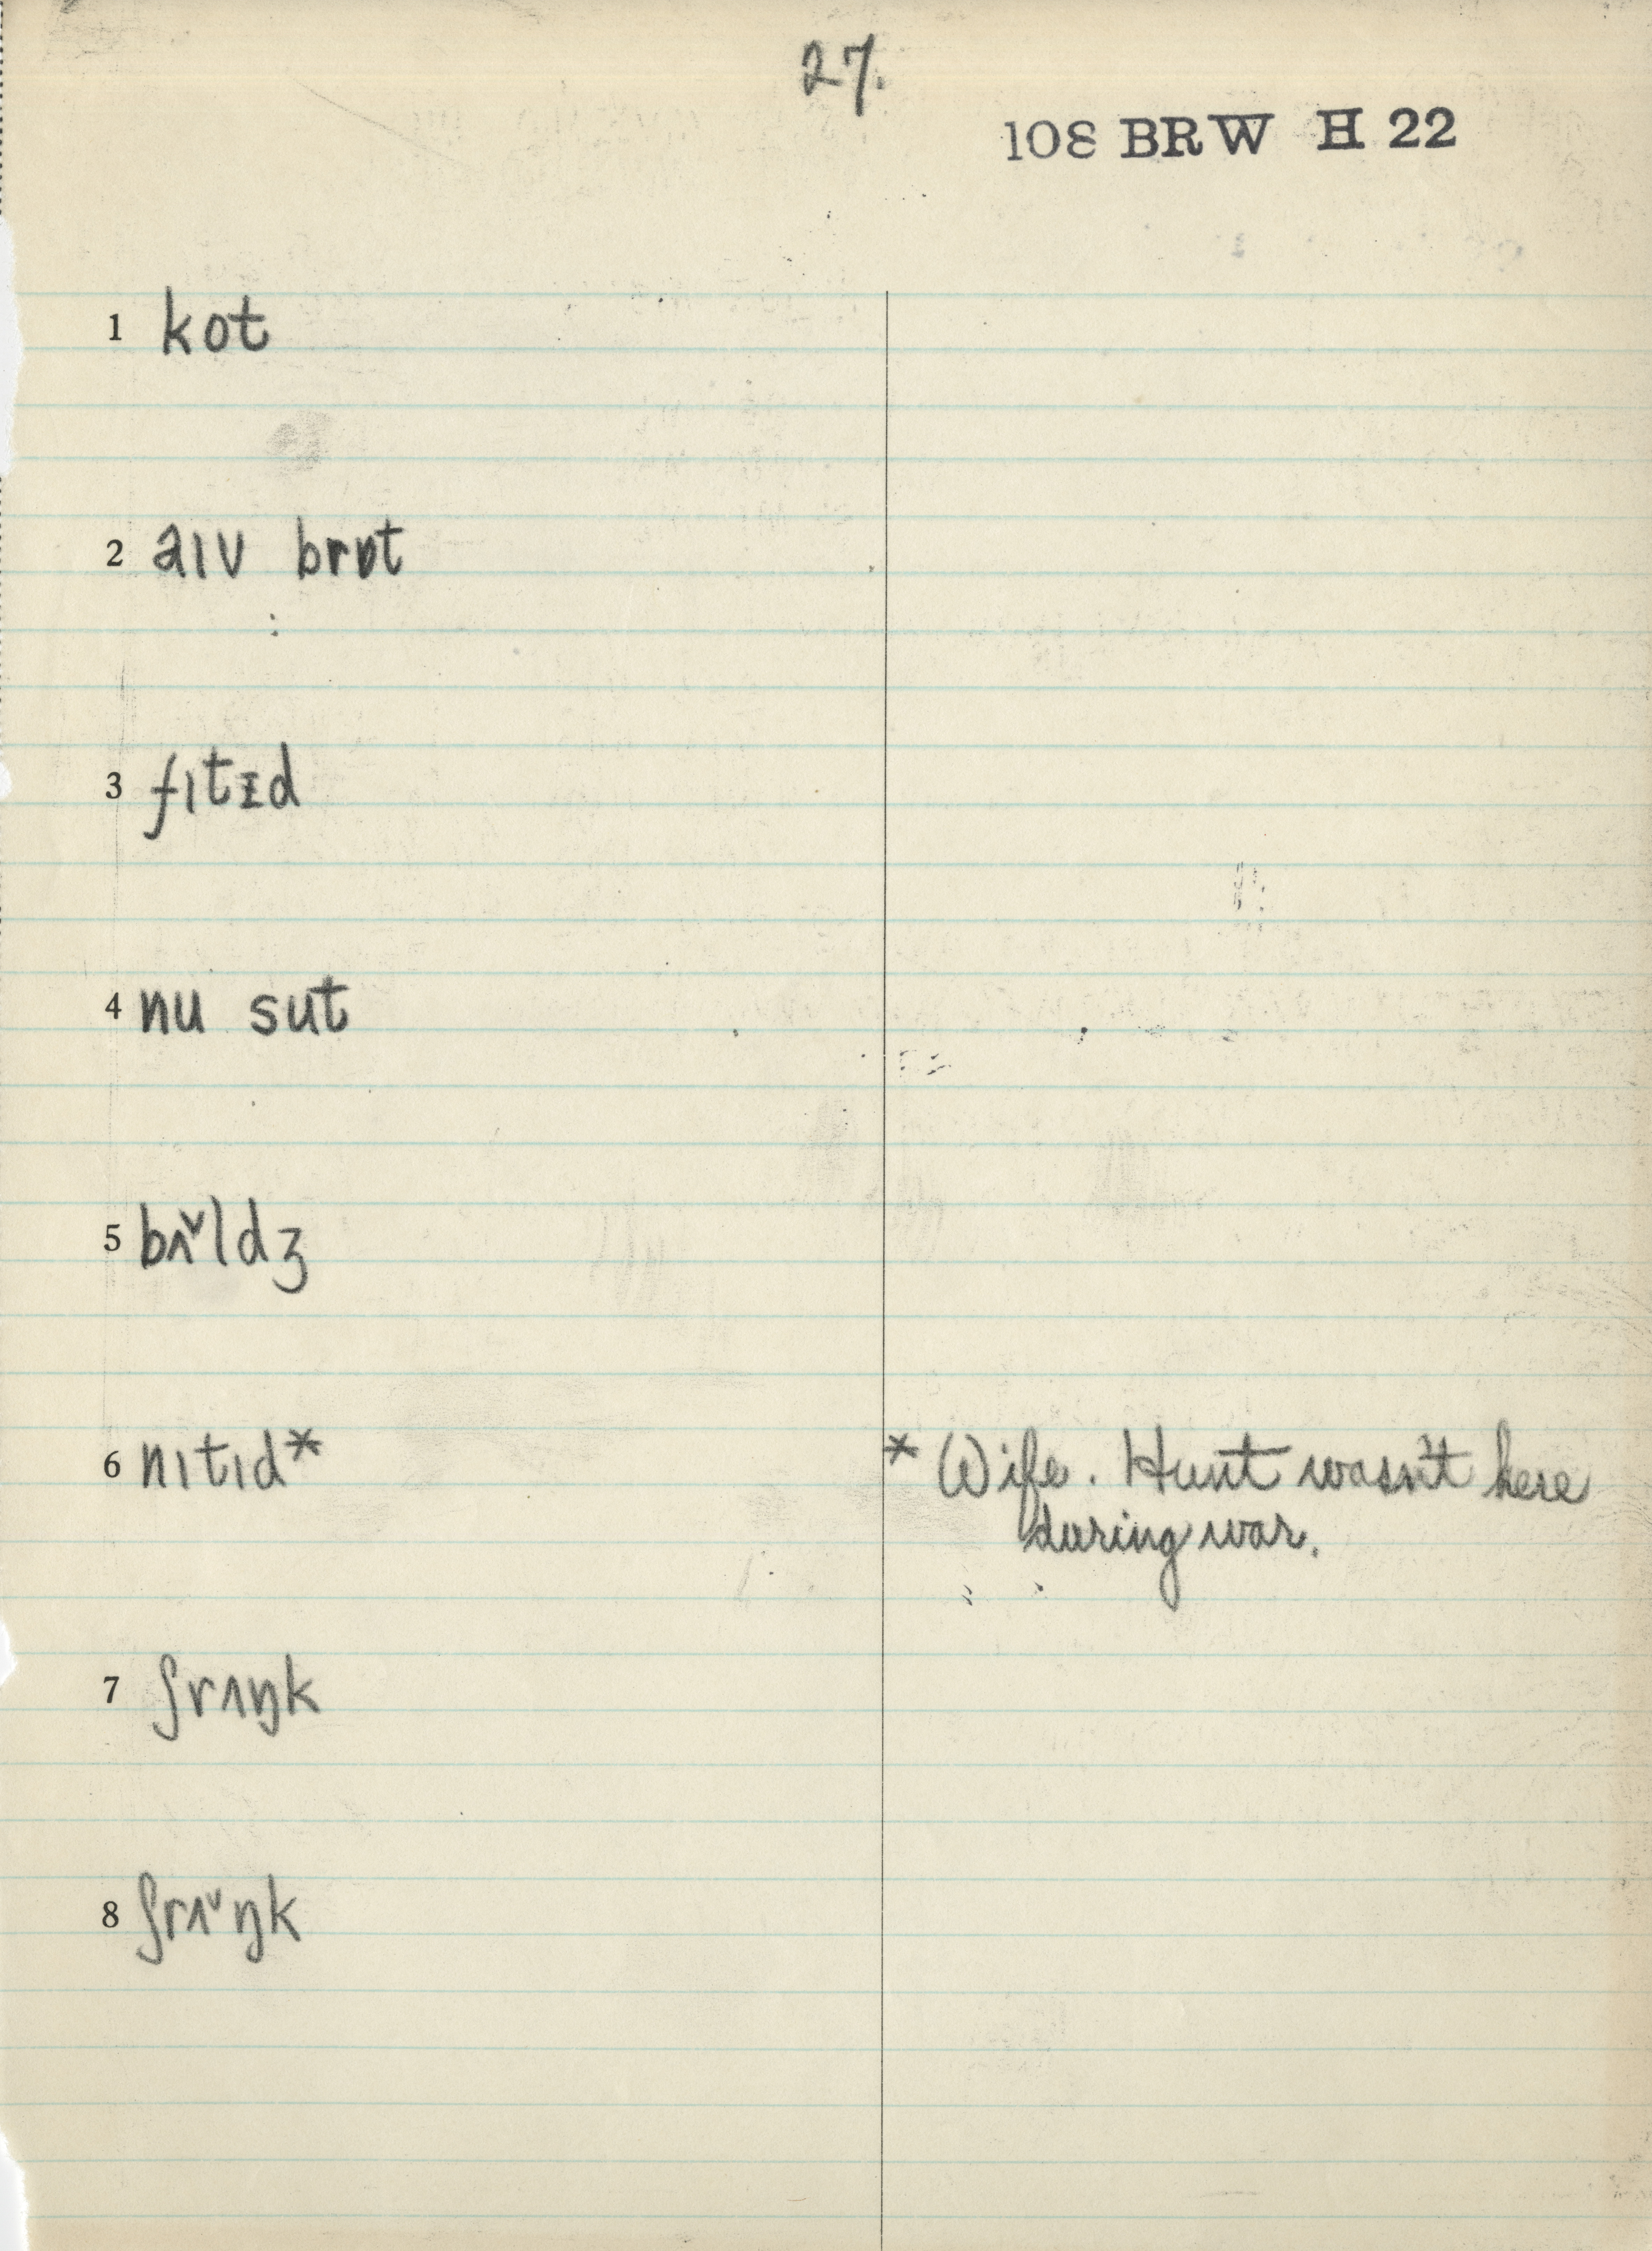 27.
108 BRW H 22
1 kot
2 aɪv brɒt
3 fɪtᵻd
4 nu sut
5 bʌ˅ldʒ
6 nɪtɪd* * Wife. Hunt wasn't here
during war.
7 ʃrʌŋk
8 ʃrʌ˅ŋk